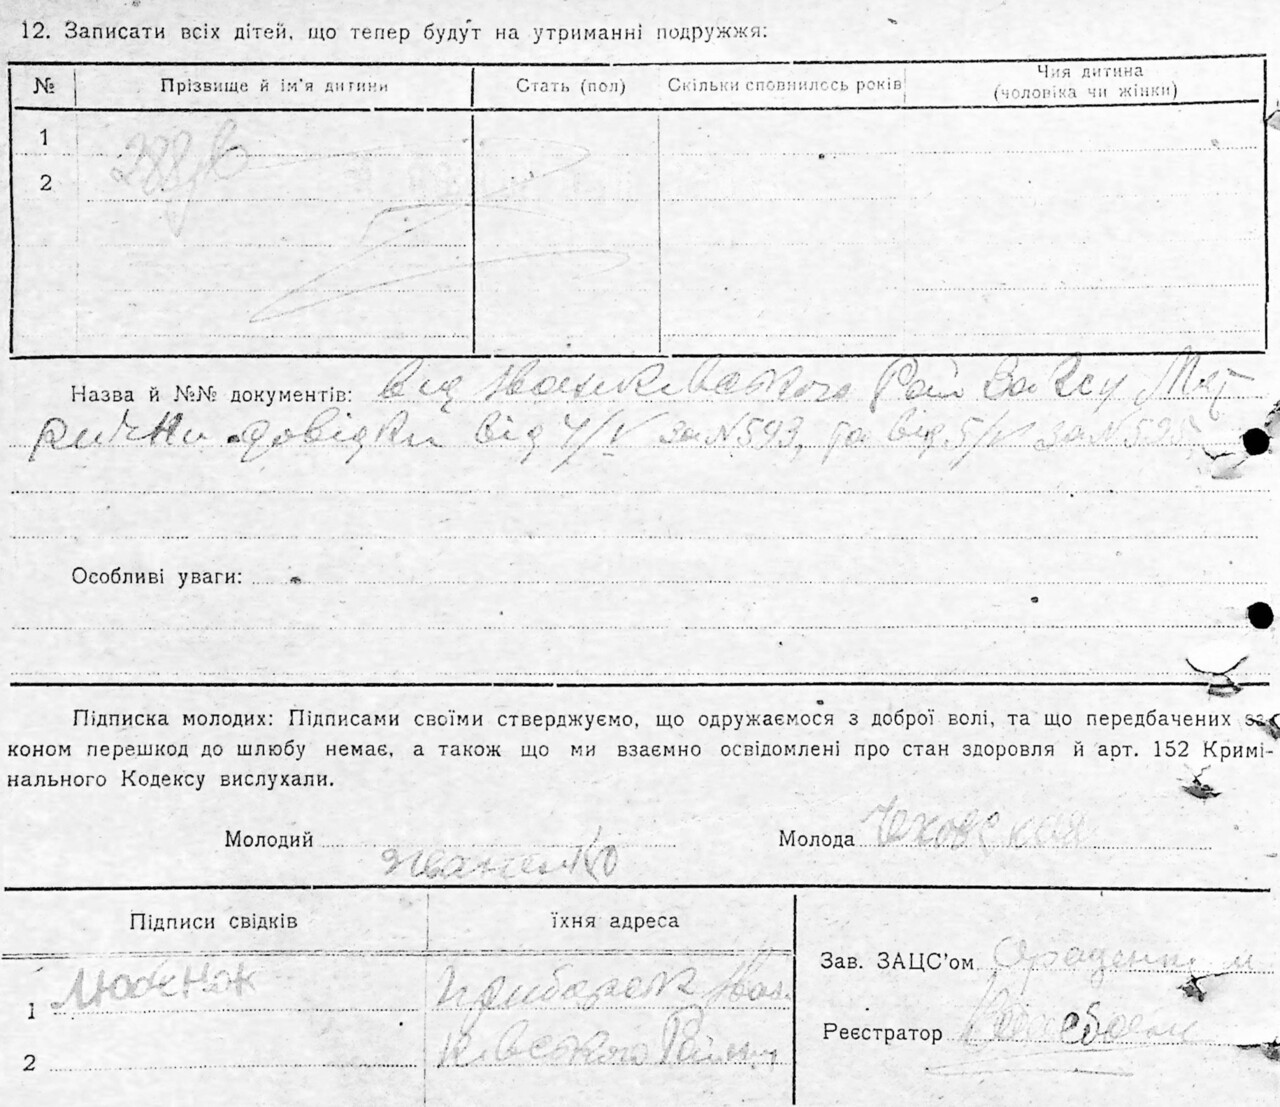 12. Записати всіх дітей, що тепер будут на утриманні подружжя:
№ Прізвище й ім'я дитини Стать (пол) Скільки сповнилось років Чия дитина (чоловіка чи жінки)
1
2
Назва й №№ документів: від Іванківського Рай
довідки від 4/V за N 593, та від 5/V за N 595
Особливі уваги:
Підписка молодих: Підписами своїми стверджуємо, що одружаємося з доброї волі, та що передбачених за-
коном перешкод до шлюбу немає, а також що ми взаємно освідомлені про стан здоровля й арт. 152 Кримі-
нального Кодексу вислухали.
Молодий Молода Чховская
Підписи свідків їхня адреса
Зав. ЗАЦС'ом
1
Реєстратор
2 ківського Району